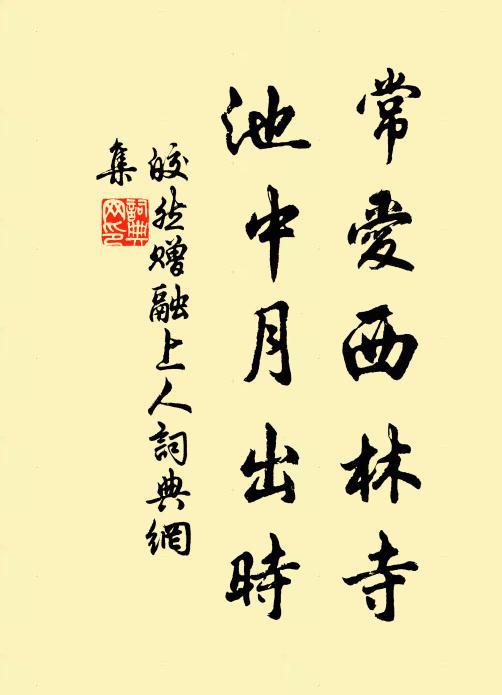 常愛西林寺
池中月出時
皎然贈融上人詞典網
集
詞典
网印